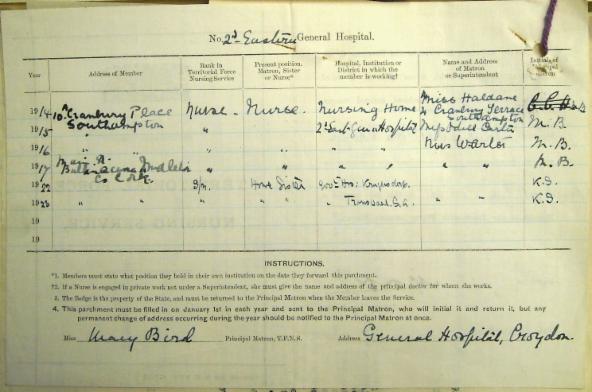 No. 2d Eastern General Hospital.
Year
Address of Member
Rank in Territorial Force Nursing Service
Present position. Matron, Sister or Nurse*
Hospital, Institution or District in which the member is working†
Name and Address of Matron or Superintendent
Initials of Principal Matron
1914 10A Cranbury Place Southampton Nurse. Nurse. Nursing Home Miss Haldane Cranbury Terrace Southampton
1915 " " 2d East. Gen Hospital M.B.
1916 " " " " M.B.
1917 Co Cork " " " " M.B.
1922 Home Sister K.S.
1923 " " " " " K.S.
19
19
INSTRUCTIONS.
*1. Members must state what position they hold in their own institution on the date they forward this parchment.
†2. If a Nurse is engaged in private work not under a Superintendent, she must give the name and address of the principal doctor for whom she works.
3. The Badge is property of the State, and must be returned to the Principal Matron when the Member leaves the Service.
4. This parchment must be filled in on January 1st in each year and sent to the Principal Matron, who will initial it and return it, but any
permanent change of address occurring during the year should be notified to the Principal Matron at once.
Miss Mary Bird Principal Matron, T.F.N.S. Address General Hospital, Croydon.